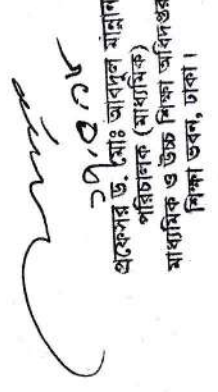 ২৭.৫.১৮
প্রফেসর ড. মোঃ আবদুল মান্নান
পরিচালক (মাধ্যমিক)
মাধ্যমিক ও উচ্চ শিক্ষা অধিদপ্তর
শিক্ষা ভবন, ঢাকা।